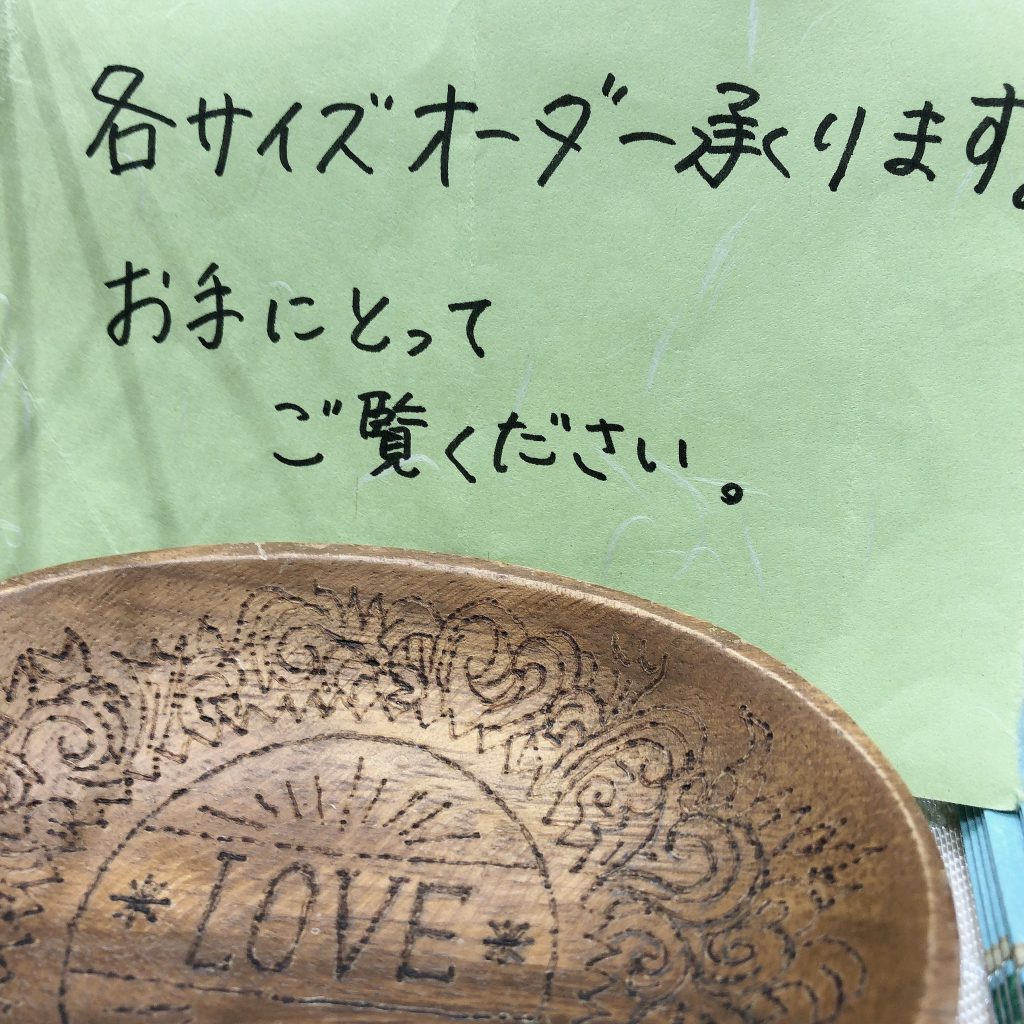 各サイズオーダー承くります。
お手にとって
ご覧ください。
LOVE